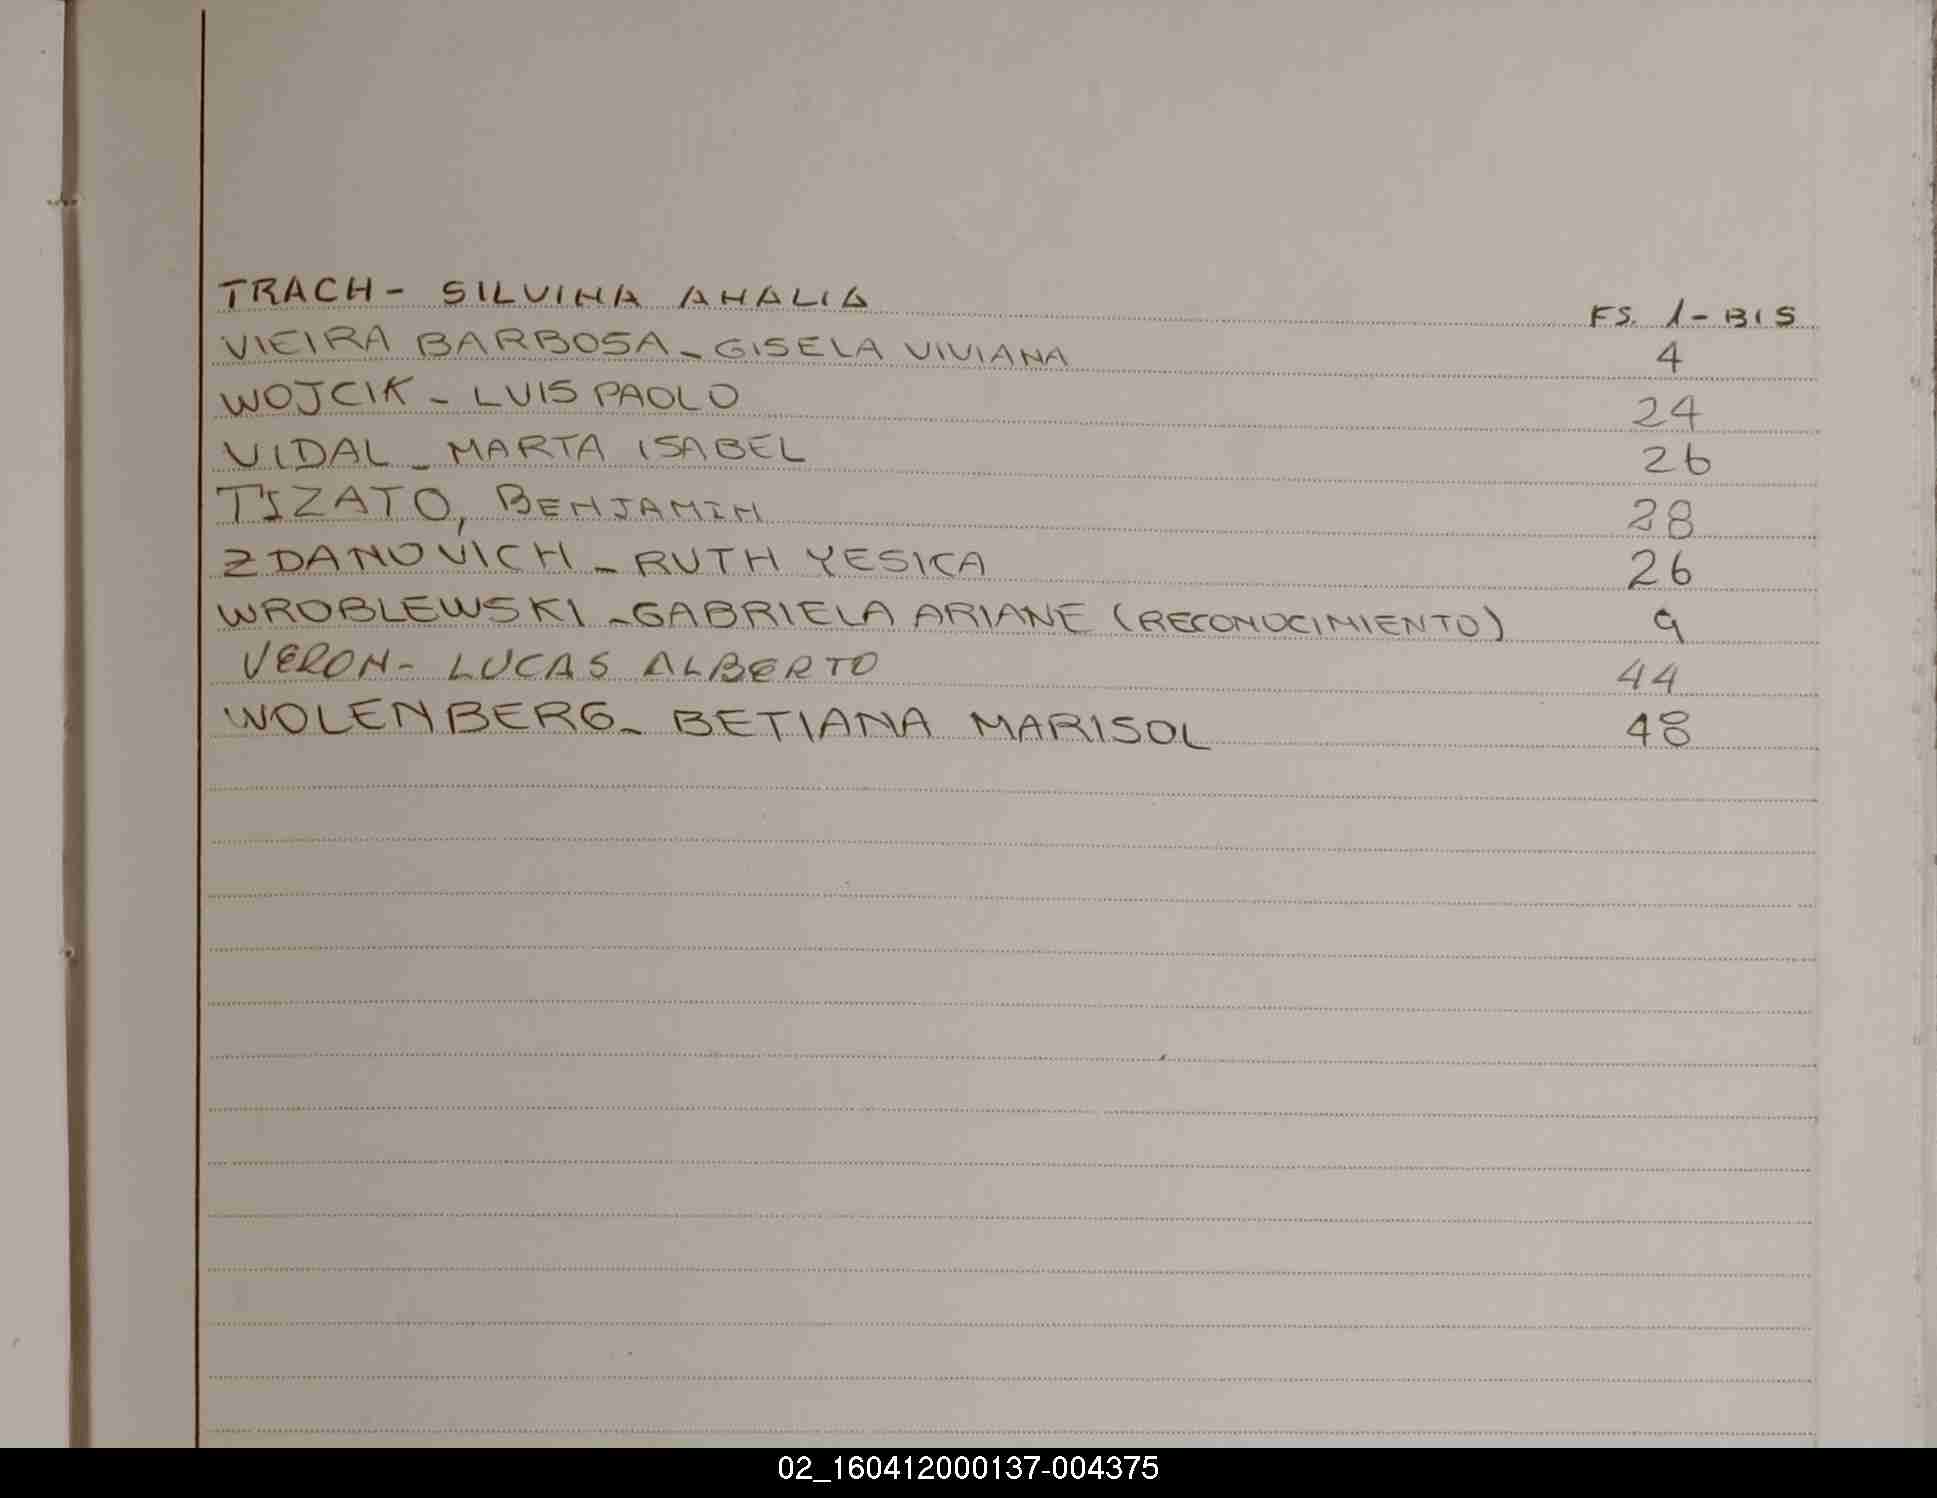 TRACH - SILVINA ANALIA FS. 1 - BIS
VIEIRA BARBOSA - GISELA VIVIANA 4
WOJCIK - LUIS PAOLO 24
VIDAL - MARTA ISABEL 26
TIZATO, BENJAMIN 28
ZDANOVICH - RUTH YESICA 26
WROBLEWSKI - GABRIELA ARIANE (RECONOCIMIENTO) 9
VERON - LUCAS ALBERTO 44
WOLENBERG - BETIANA MARISOL 48
02_160412000137-004375